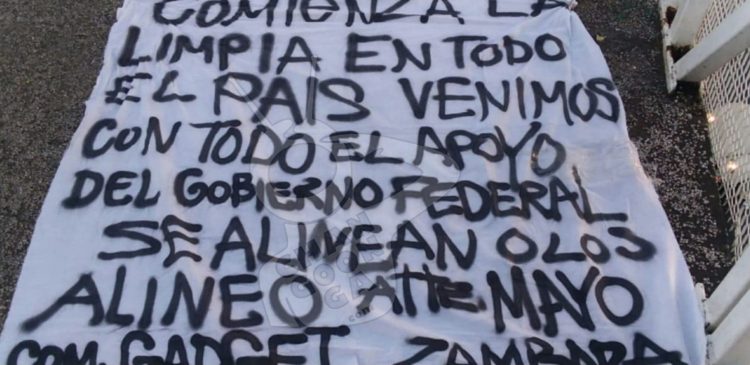 COMIENZA LA
LIMPIA EN TODO
EL PAIS VENIMOS
CON TODO EL APOYO
DEL GOBIERNO FEDERAL
SE ALINEAN O LOS
ALINEO ATTE. MAYO
COM. GADGET ZAMBADA